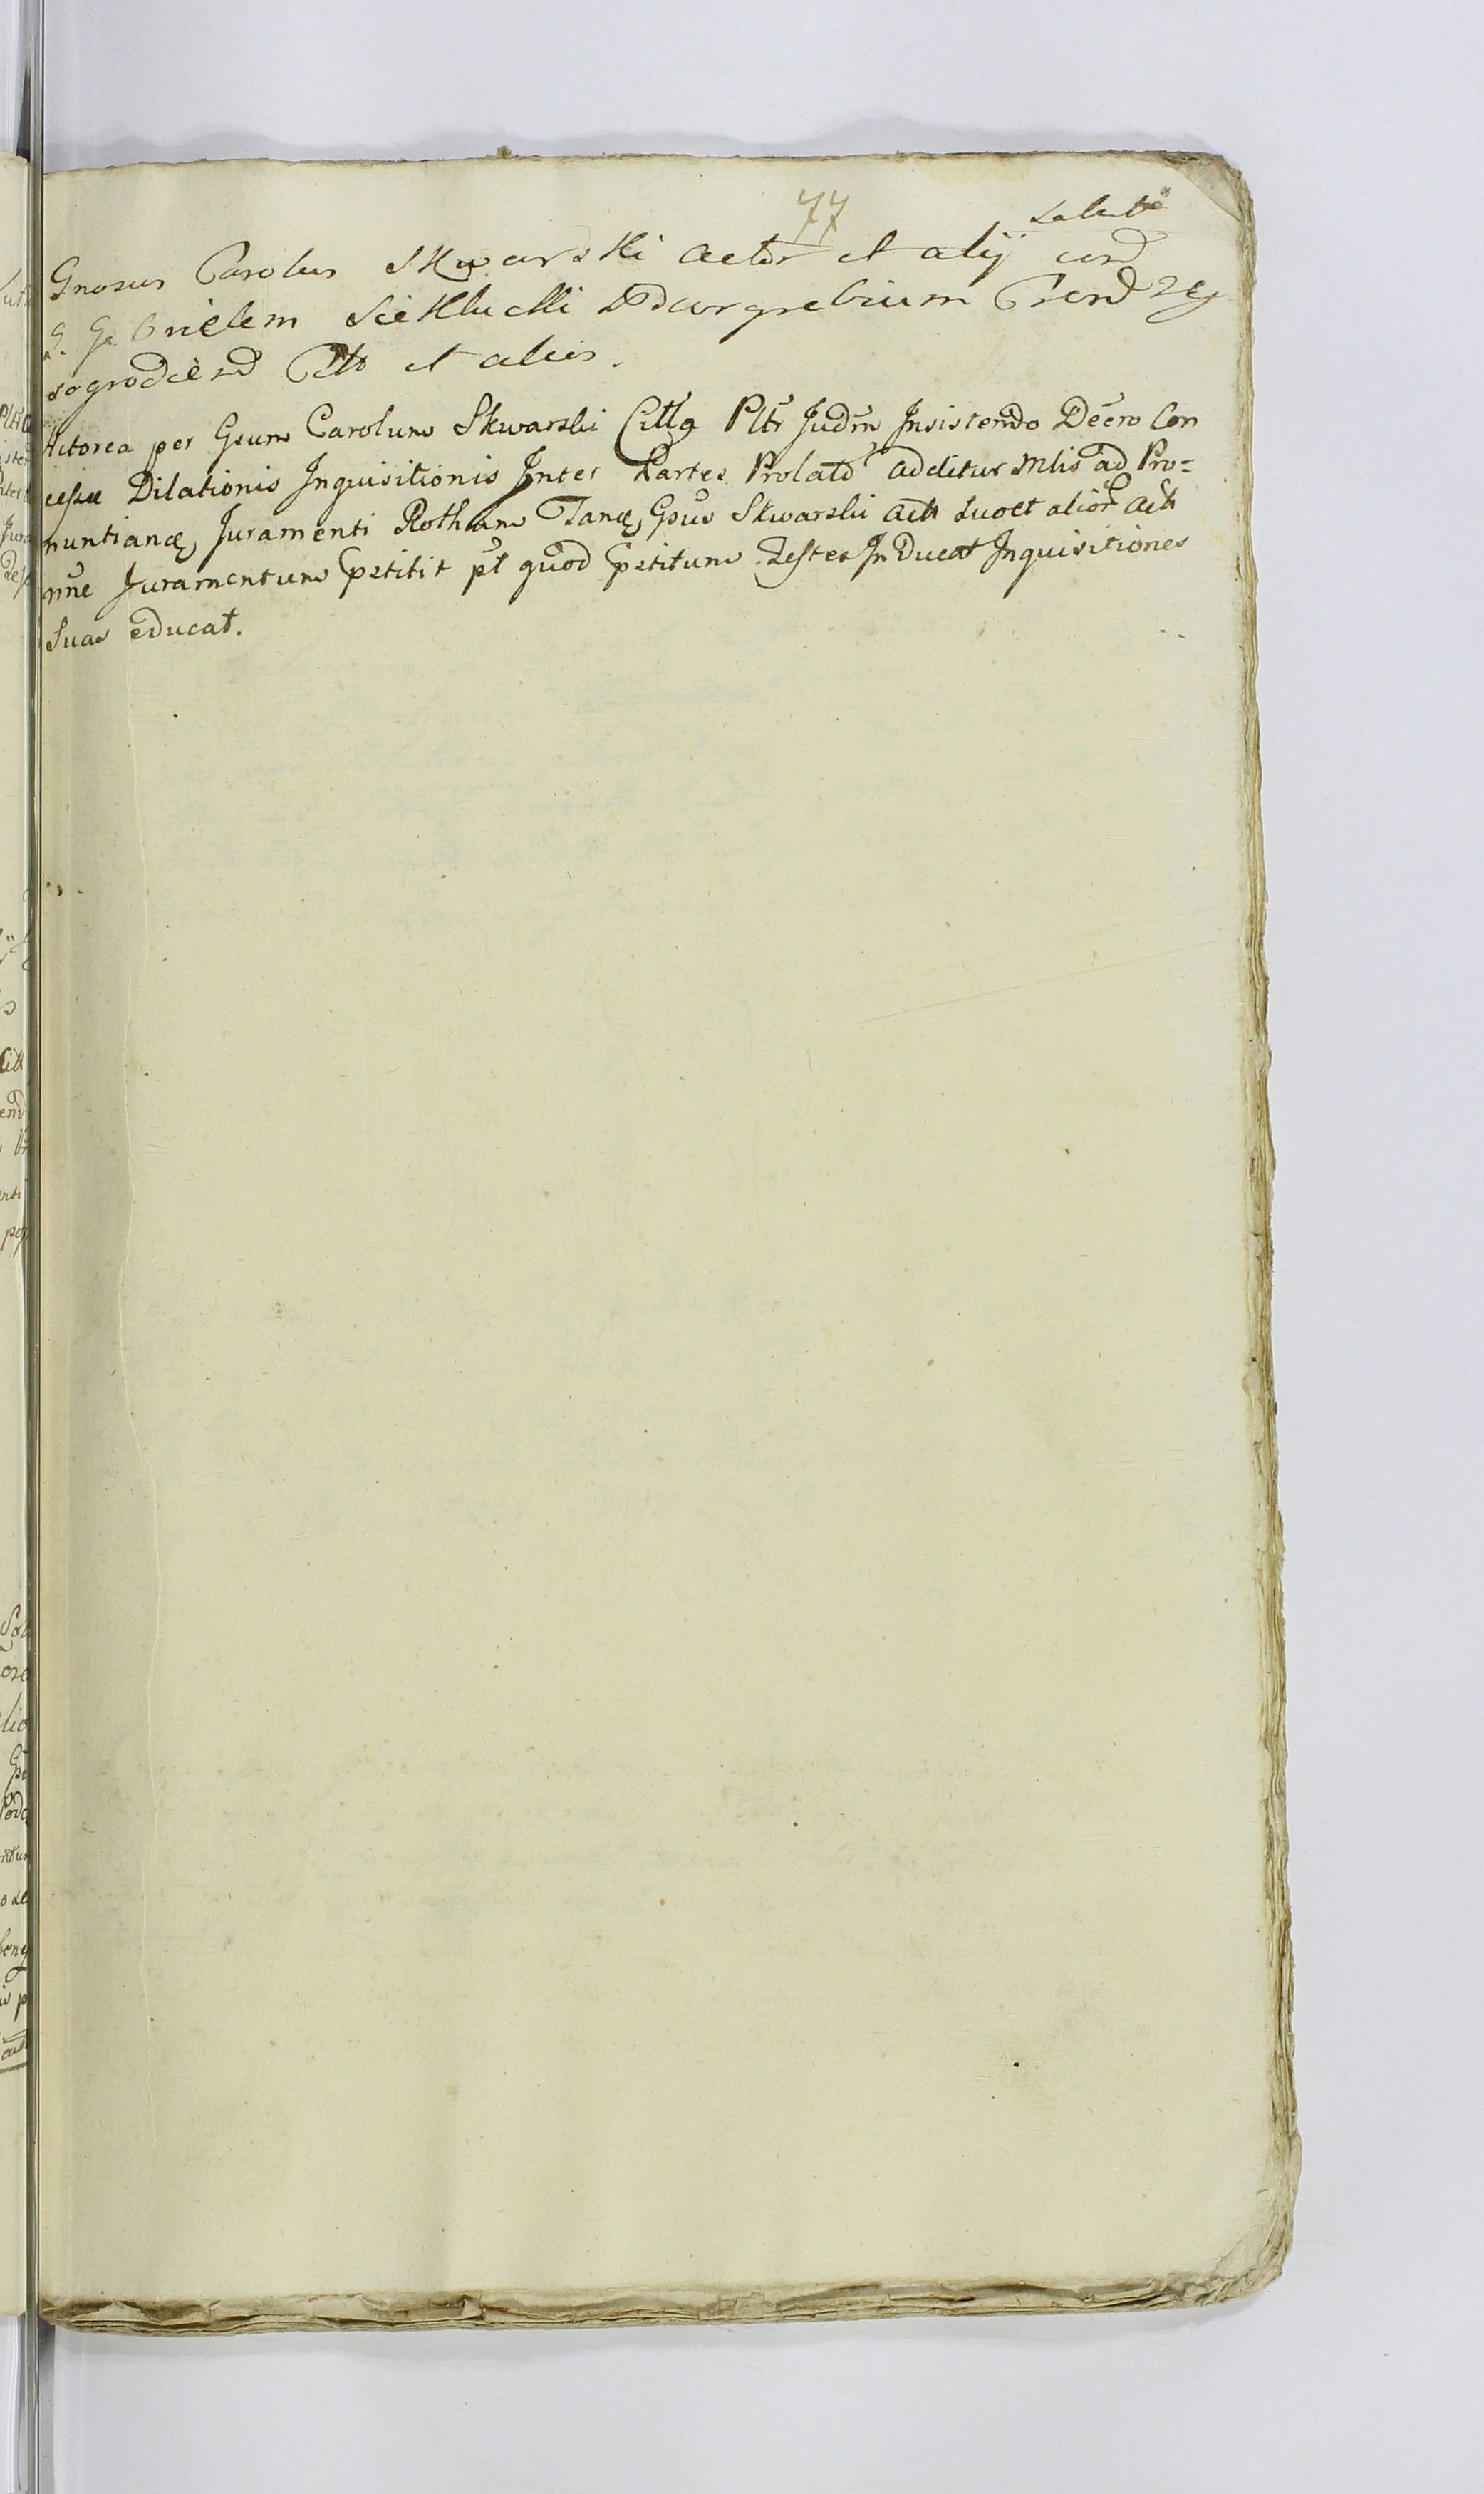 77
Gnosus Carolus Skwarski Actor et alij cum
G. Gabrielem Siekluckli Burgrabium
sogrodiensd Citt et aliis.
Actorea per Gsum Carolum Skwarski Citta Pltr Judm Insistendo Decro Con
cessae Dilationis Inquisitionis Inter Partes Prolato additur Mlis ad Pro=
nuntianda Juramenti Rotham Tanq Gsus Skwarski Act suo et alior Act
nne Juramentum Pstitit pt quod Pstitum Testes Inducat Inquisitiones
Suas educat.